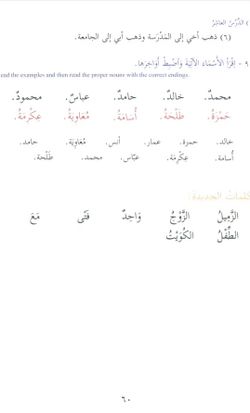 الدَّرْسُ العَاشِرُ
(٦) ذهب أخي إلى المَدْرَسة وذهب أبي إلى الجامعة.
٩ - اِقْرَأْ الأَسْمَاءَ الآتِيَةَ وَاضْبِطْ أَوَاخِرَهَا.
ead the examples and then read the proper nouns with the correct endings.
محمدٌ. خالدٌ. حامدٌ. عباسٌ. محمودٌ.
حَمْزَةُ. طَلْحَةُ. أُسَامَةُ. مُعَاوِيَةُ. عِكْرِمَةُ.
خالد. حمزة. عمار. أنس. مُعَاوِيَة. حامد.
أُسامة. عِكْرِمَة. عبّاس. محمد. طَلْحَة.
كلمات الجديدة:
الزَّمِيلُ الزَّوْجُ وَاحِدٌ فَتًى مَعَ
الطِّفْلُ الكُوَيْتُ
٦٠